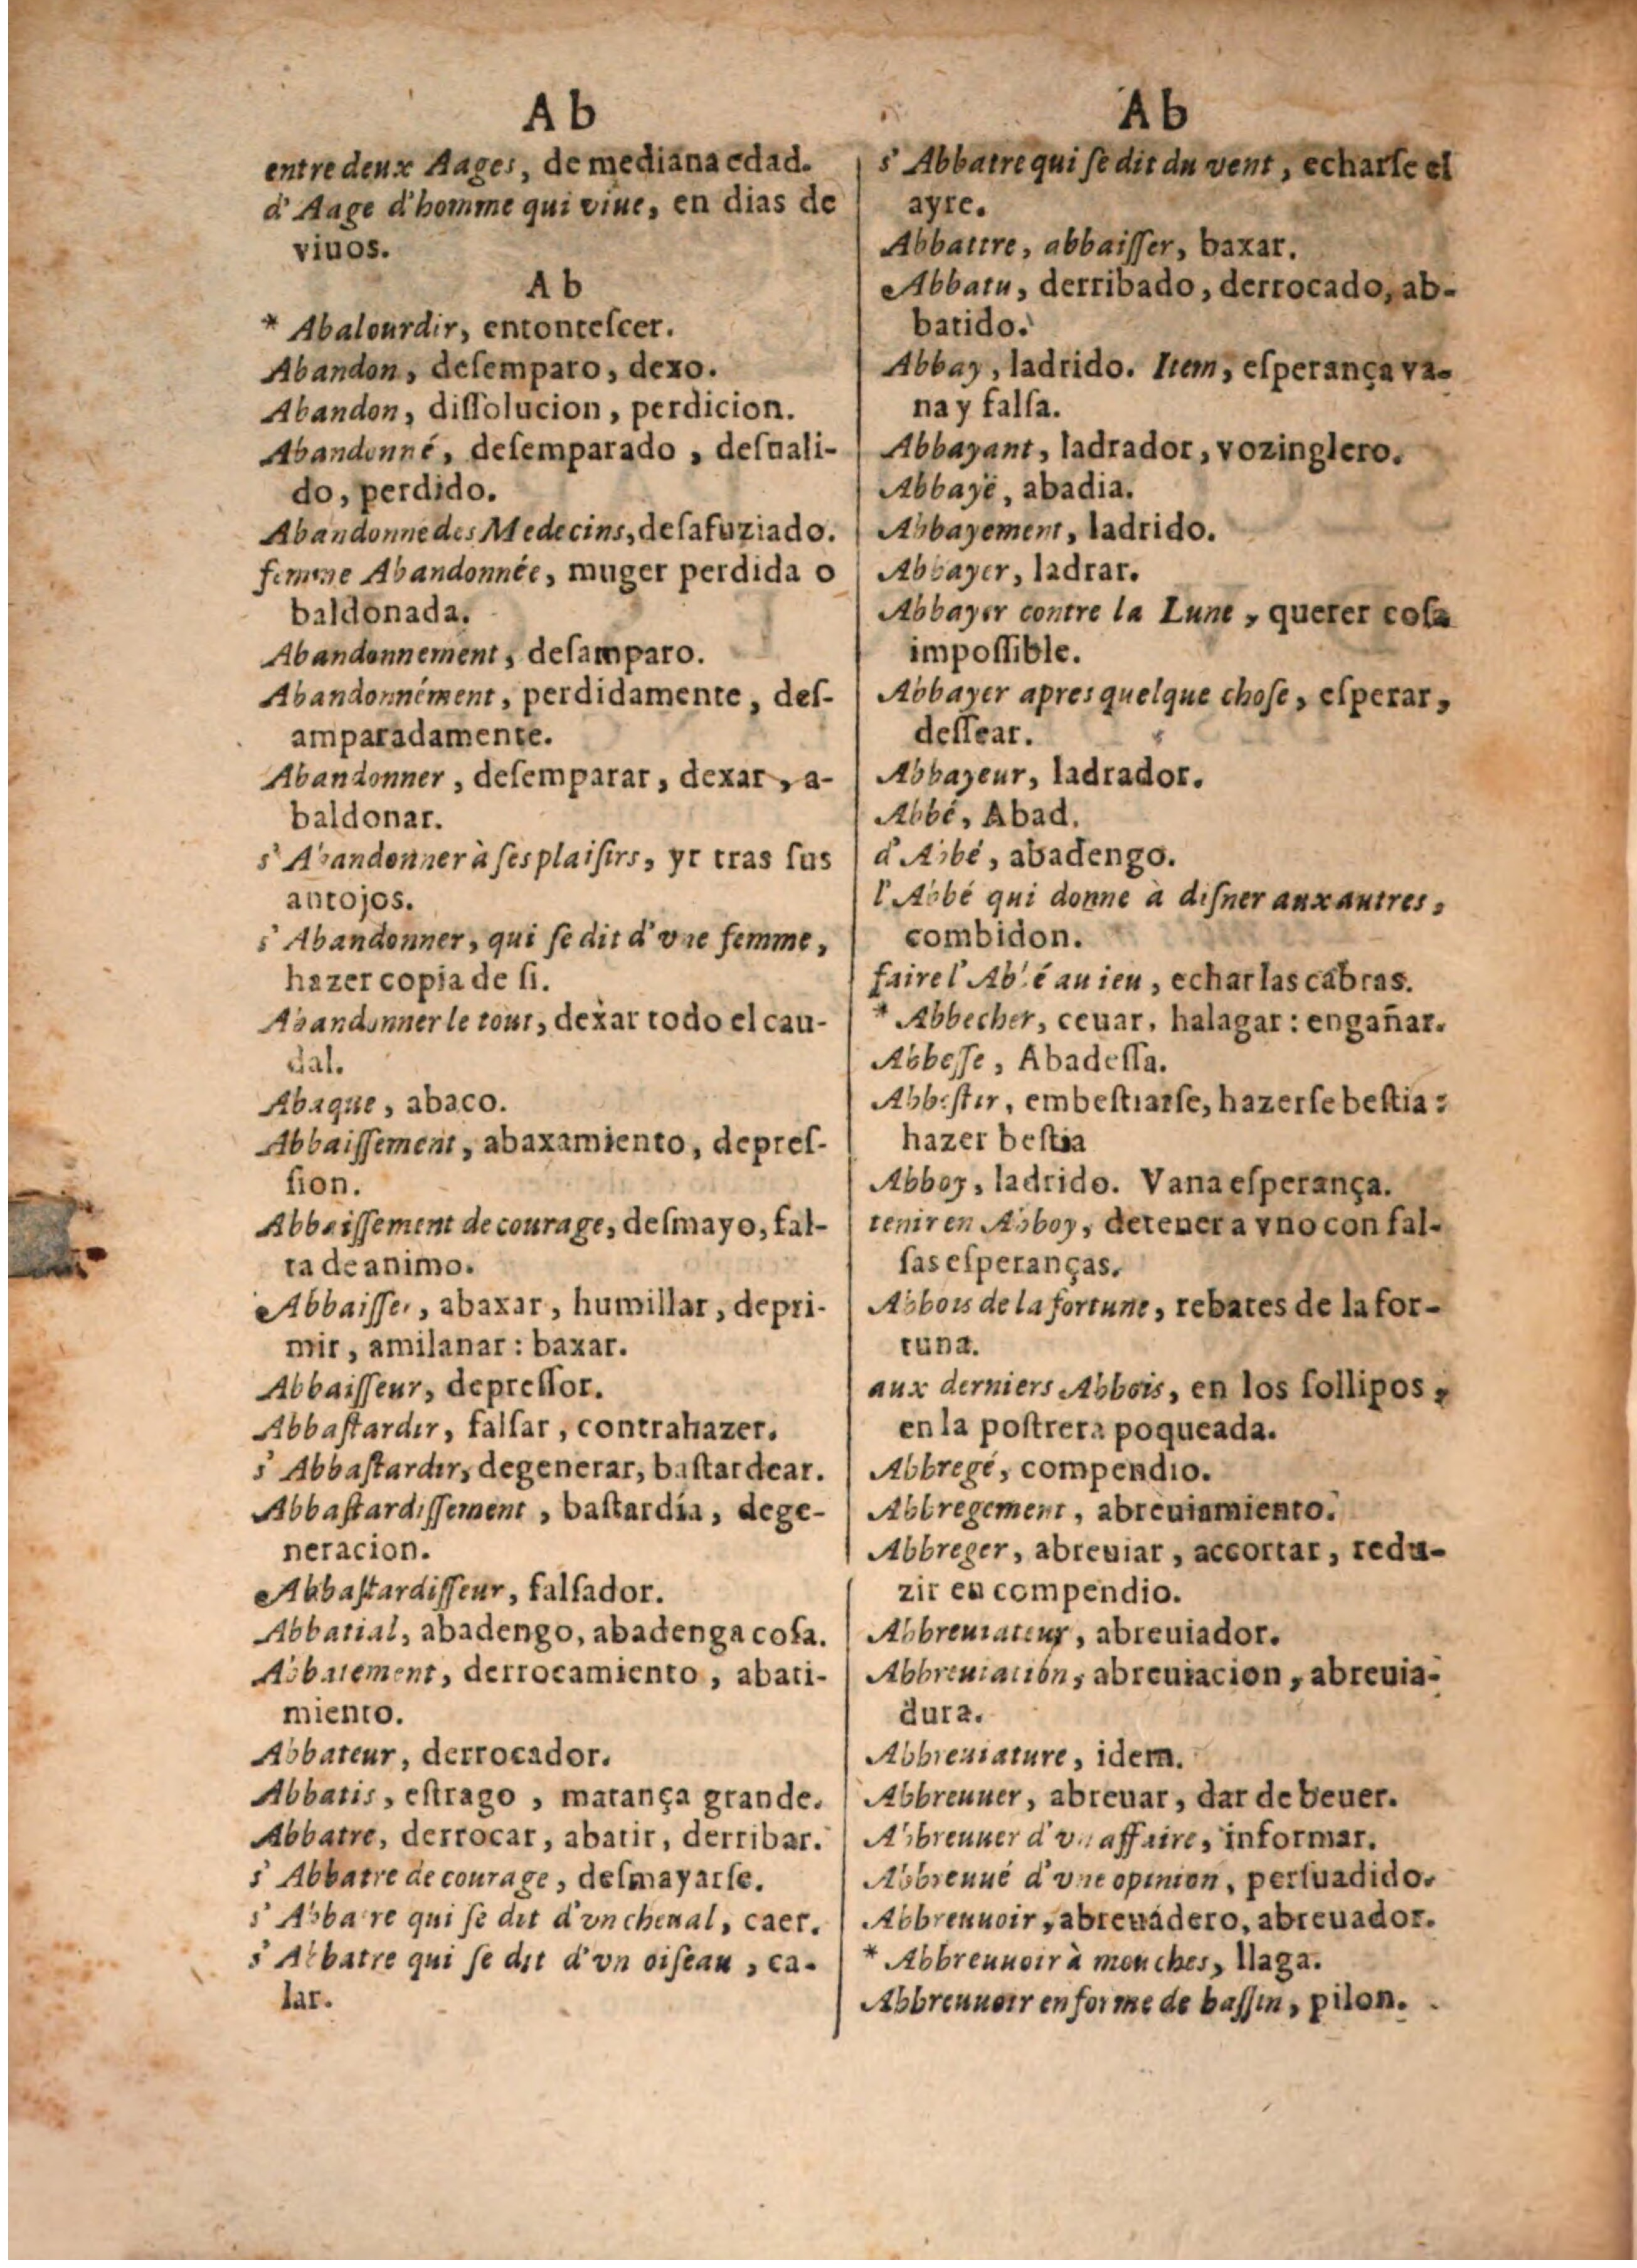 Ab
entre deux Aages, de mediana edad.
d'Aage d'homme qui viue, en dias de
viuos.
Ab
* Abalourdir, entonteſcer.
Abandon, deſemparo, dexo.
Abandon, diſſolucion, perdicion.
Abandonné, deſemparado, deſuali-
do, perdido.
Abandonne des Medecins, deſafuziado.
femme Abandonnée, muger perdida o
baldonada.
Abandonnement, deſamparo.
Abandonnément, perdidamente, deſ-
amparadamente.
Abandonner, deſemparar, dexar, a-
baldonar.
s'Abandonner à ſes plaiſirs, yr tras ſus
antojos.
s'Abandonner, qui ſe dit d'vne femme,
hazer copia de ſi.
Abandonner le tout, dexar todo el cau-
dal.
Abaque, abaco.
Abbaiſſement, abaxamiento, depreſ-
ſion.
Abbaiſſement de courage, deſmayo, fal-
ta de animo.
Abbaiſſer, abaxar, humillar, depri-
mir, amilanar: baxar.
Abbaiſſeur, depreſſor.
Abbaſtardir, falſar, contrahazer.
s'Abbaſtardir, degenerar, baſtardear.
Abbaſtardiſſement, baſtardía, dege-
neracion.
Abbaſtardiſſeur, falſador.
Abbatial, abadengo, abadenga coſa.
Abbatement, derrocamiento, abati-
miento.
Abbateur, derrocador.
Abbatis, eſtrago, matança grande.
Abbatre, derrocar, abatir, derribar.
s'Abbatre de courage, deſmayarſe.
s'Abbatre qui ſe dit d'vn cheual, caer.
s'Abbatre qui ſe dit d'vn oiſeau, ca-
lar.
Ab
s'Abbatre qui ſe dit du vent, echarſe el
ayre.
Abbattre, abbaiſſer, baxar.
Abbatu, derribado, derrocado, ab-
batido.
Abbay, ladrido. Item, eſperança va-
na y falſa.
Abbayant, ladrador, vozinglero.
Abbayë, abadia.
Abbayement, ladrido.
Abbayer, ladrar.
Abbayer contre la Lune, querer coſa
impoſſible.
Abbayer apres quelque choſe, eſperar,
deſſear.
Abbayeur, ladrador.
Abbé, Abad.
d'Abbé, abadengo.
l'Abbé qui donne à diſner aux autres,
combidon.
faire l'Abbé au ieu, echar las cabras.
* Abbecher, ceuar, halagar: engañar.
Abbeſſe, Abadeſſa.
Abbeſtir, embeſtiarſe, hazerſe beſtia:
hazer beſtia
Abboy, ladrido. Vana eſperança.
tenir en Abboy, detener a vno con fal-
ſas eſperanças.
Abbois de la fortune, rebates de la for-
tuna.
aux derniers Abbois, en los ſollipos,
en la poſtrera poqueada.
Abbregé, compendio.
Abbregement, abreuiamiento.
Abbreger, abreuiar, accortar, redu-
zir en compendio.
Abbreuiateur, abreuiador.
Abbreuiation, abreuiacion, abreuia-
dura.
Abbreuiature, idem.
Abbreuuer, abreuar, dar de beuer.
Abbreuuer d'vn affaire, informar.
Abbreuué d'vne opinion, perſuadido.
Abbreuuoir, abreuadero, abreuador.
* Abbreuuoir à mouches, llaga.
Abbreuuoir en forme de baſſin, pilon.